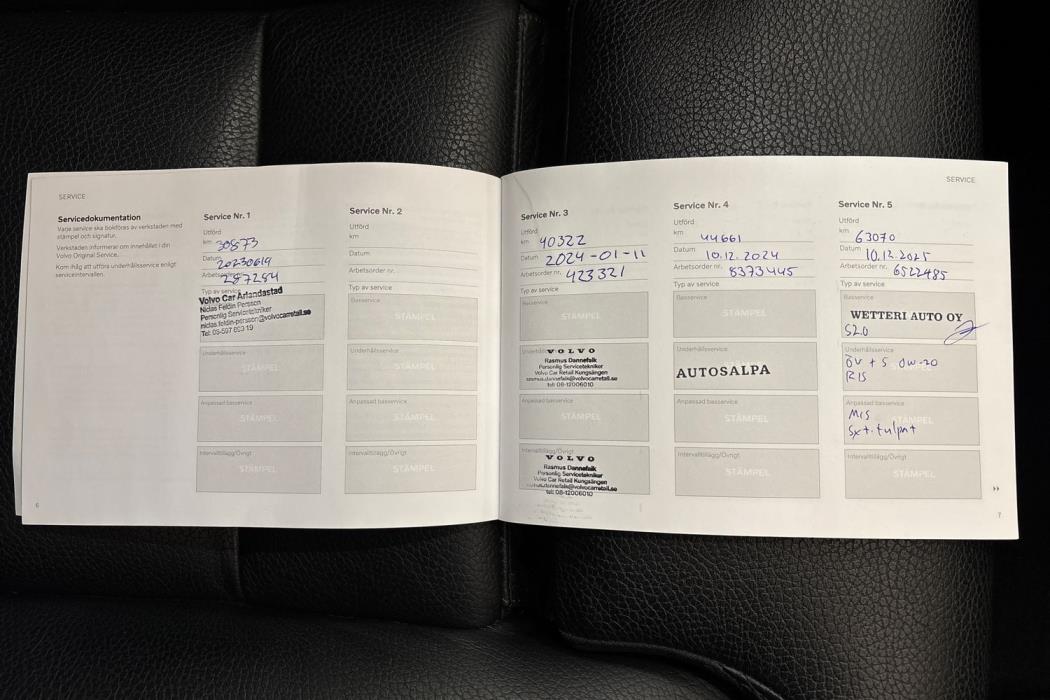 SERVICE
Servicedokumentation
Varje service ska bokföras av verkstaden med
stämpel och signatur.
Verkstaden informerar om innehållet i din
Volvo Original Service.
Kom ihåg att utföra underhållsservice enligt
serviceintervallen.
6
Service Nr. 1
Utförd
km 30573
Datum 20230619
287284
Typ av service
Volvo Car Arlandastad
Niclas Feldin Persson
Personlig Servicetekniker
niclas.feldin-persson@volvocarretail.se
Underhållsservice
STÄMPEL
Anpassad basservice
STÄMPEL
Intervalltillägg/Övrigt
STÄMPEL
Service Nr. 2
Utförd
km
Datum
Arbetsorder nr.
Typ av service
Basservice
STÄMPEL
Underhållsservice
STÄMPEL
Anpassad basservice
STÄMPEL
Intervalltillägg/Övrigt
STÄMPEL
SERVICE
Service Nr. 3
Utförd
km 40322
Datum 2024-01-11
Arbetsorder nr. 423321
Typ av service
Basservice
STÄMPEL
VOLVO
Rasmus Dannefalk
Personlig Servicetekniker
Volvo Car Retail Kungsängen
rasmus.dannefalk@volvocarretail.se
tel: 08-12006010
Anpassad basservice
STÄMPEL
Intervalltillägg/Övrigt
VOLVO
Rasmus Dannefalk
Personlig Servicetekniker
Volvo Car Retail Kungsängen
rasmus.dannefalk@volvocarretail.se
tel: 08-12006010
Service Nr. 4
Utförd
km 44661
Datum 10.12.2024
Arbetsorder nr. 8373445
Typ av service
Basservice
STÄMPEL
Underhållsservice
AUTOSALPA
Anpassad basservice
STÄMPEL
Intervalltillägg/Övrigt
STÄMPEL
Service Nr. 5
Utförd
km 63070
Datum 10.12.2025
Arbetsorder nr. 6522485
Typ av service
Basservice
WETTERI AUTO OY
S2.0
Underhållsservice
ÖV + S 0W-20
RIS
Anpassad basservice
STÄMPEL
MIS
Intervalltillägg/Övrigt
STÄMPEL
7